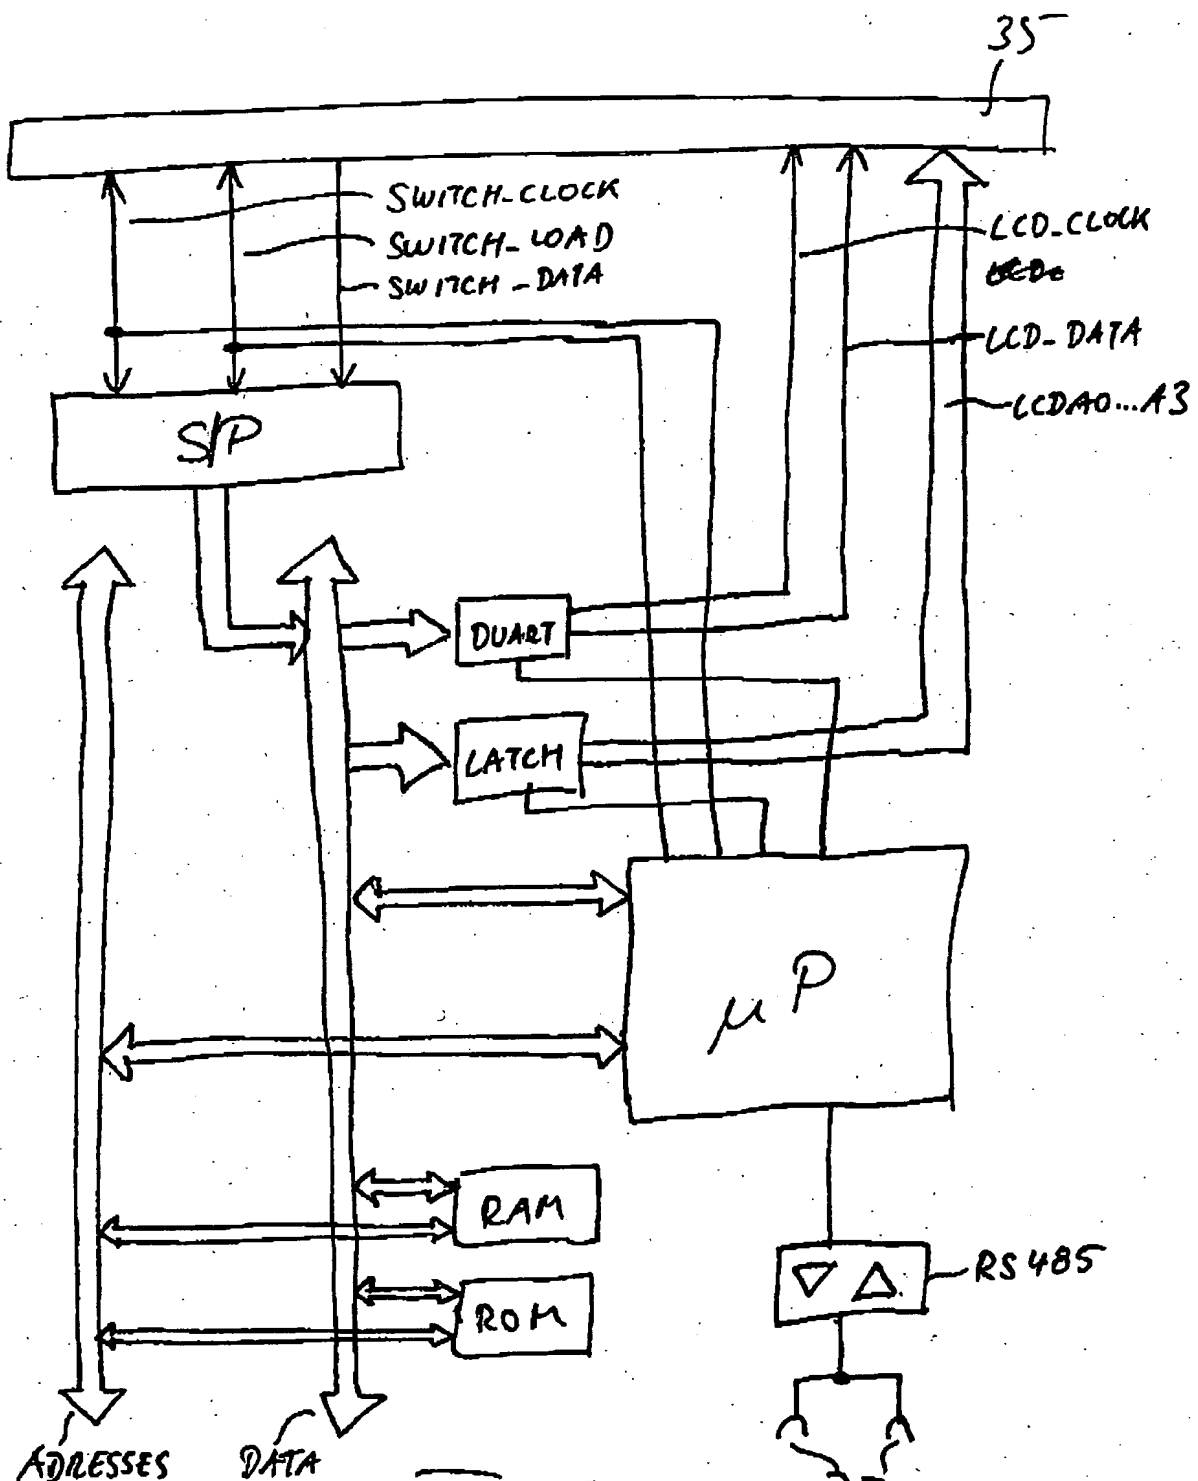 35
SWITCH_CLOCK
SWITCH_LOAD
SWITCH_DATA
LCD_CLOCK
LCD_DATA
LCDA0...A3
S/P
DUART
LATCH
µP
RAM
ROM
RS 485
ADRESSES
DATA